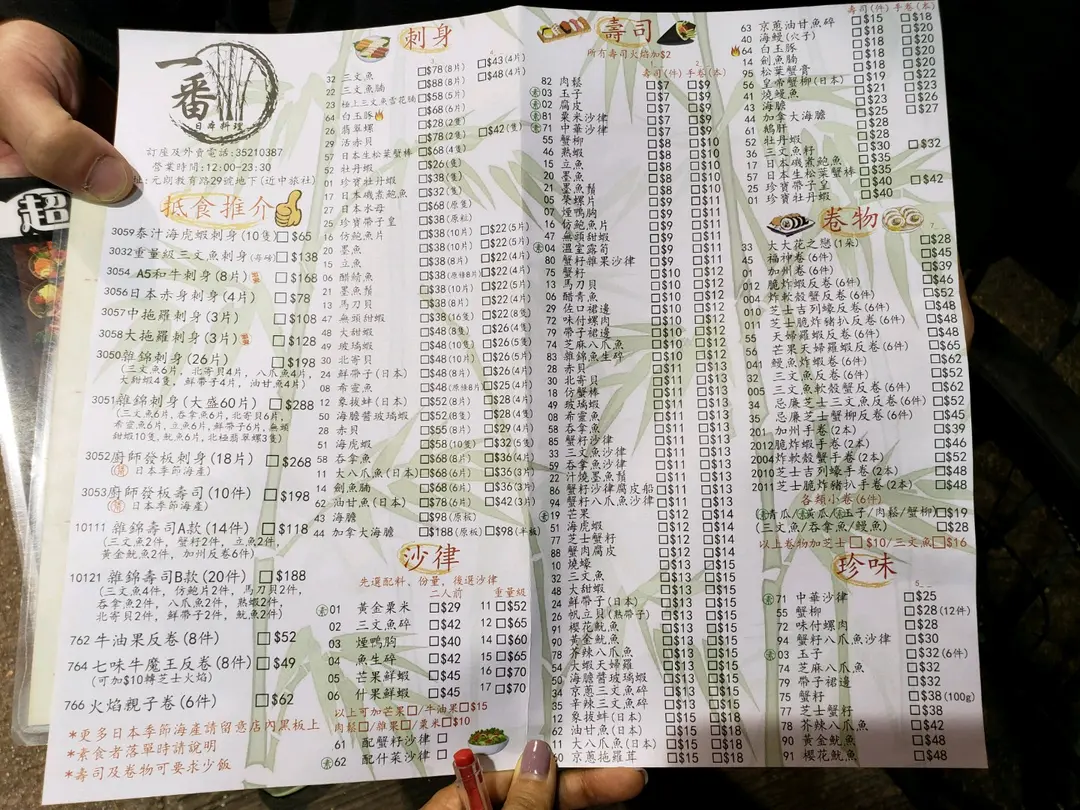 一番
日本料理
訂座及外賣電話:35210387
營業時間:12:00-23:30
址:元朗教育路29號地下(近中旅社)
超
抵食推介
3059泰汁海虎蝦刺身(10隻) $65
3032重量級三文魚刺身(每磅) $138
3054 A5和牛刺身(8片) $168
3056日本赤身刺身(4片) $78
3057中拖羅刺身(3片) $108
3058大拖羅刺身(3片) $128
3050雜錦刺身(26片) $198
(三文魚6片, 北寄貝4片, 八爪魚4片,
大甜蝦4隻, 鮮帶子4片, 油甘魚4片)
3051雜錦刺身(大盛60片) $288
(三文魚6片, 吞拿魚6片, 北寄貝6片,
希靈魚6片, 立魚6片, 鮮帶子6片, 無頭
甜蝦10隻, 魷魚6片, 北極翡翠螺3片)
3052廚師發板刺身(18片) $268
日本季節海產)
3053廚師發板壽司(10件) $198
日本季節海產)
10111 雜錦壽司A款(14件) $118
(三文魚2件, 蟹籽2件, 立魚2件,
黃金魷魚2件, 加州反卷6件)
10121 雜錦壽司B款(20件) $188
(三文魚4件, 仿鮑片2件, 馬刀貝2件,
吞拿魚2件, 八爪魚2件, 熟蝦2件,
北寄貝2件, 鮮帶子2件, 魷魚2件)
762 牛油果反卷(8件) $52
764 七味牛魔王反卷(8件) $49
(可加$10轉芝士火焰)
766 火焰親子卷(6件) $62
*更多日本季節海產請留意店內黑板上
*素食者落單時請說明
*壽司及卷物可要求少飯
刺身
32 三文魚 $78(8片) $43(4片)
22 三文魚腩 $88(8片) $48(4片)
23 極上三文魚雪花腩 $58(6片)
64 白玉豚 $68(8片)
26 翡翠螺 $28(2片)
29 活赤貝 $78(2隻) $42(隻)
57 日本生松葉蟹棒 $68(4隻)
52 牡丹蝦 $26(隻)
01 珍寶牡丹蝦 $38(隻)
17 日本磯煮鮑魚 $32(隻)
27 日本水母 $68(原隻)
25 珍寶帶子皇 $38(原粒)
16 仿鮑魚片 $38(10片) $22(5片)
20 墨魚 $38(10片) $22(5片)
15 立魚 $38(8片) $22(4片)
06 醋鯖魚 $38(原條8片) $22(4片)
21 墨魚鬚 $38(10片) $22(5片)
13 馬刀貝 $38(8片) $22(4片)
47 無頭甜蝦 $38(16隻) $22(8隻)
48 大甜蝦 $48(8隻) $26(4隻)
49 玻璃蝦 $48(10隻) $26(5隻)
30 北寄貝 $48(10片) $26(5片)
24 鮮帶子(日本) $48(8片) $25(4片)
08 希靈魚 $48(原條8片) $25(4片)
12 象拔蚌(日本) $52(8片) $28(4片)
50 海膽醬玻璃蝦 $52(8隻) $28(4隻)
28 赤貝 $55(8片) $29(4片)
51 海虎蝦 $58(10隻) $32(5隻)
58 吞拿魚 $68(8片) $36(4片)
11 大八爪魚(日本) $68(6片) $36(3片)
14 劍魚腩 $68(6片) $36(3片)
62 油甘魚(日本) $78(6片) $42(3片)
43 海膽 $98(原板)
44 加拿大海膽 $188(原板) $98(半板)
沙律
先選配料、份量, 後選沙律
二人前 重量級
01 黃金粟米 $29 11 $52
02 三文魚碎 $42 12 $65
03 煙鴨胸 $40 14 $60
04 魚生碎 $42 15 $65
05 芒果鮮蝦 $45 16 $70
06 什果鮮蝦 $45 17 $70
以上可加芒果 /牛油果 $15
肉鬆 /雜果 /粟米 $10
61 配蟹籽沙律
62 配什菜沙律
壽司
所有壽司火焰加$2
壽司(件) 手卷(本)
82 肉鬆 $7 $9
03 玉子 $7 $9
02 腐皮 $7 $9
81 粟米沙律 $7 $9
71 中華沙律 $7 $9
55 蟹柳 $8 $10
46 熟蝦 $8 $10
15 立魚 $8 $10
20 墨魚 $8 $10
21 墨魚鬚 $8 $10
05 蔡螺片 $9 $11
07 煙鴨胸 $9 $11
16 仿鮑魚片 $9 $11
47 無頭甜蝦 $9 $11
04 溫室露筍 $9 $11
80 蟹籽雜果沙律 $9 $11
75 蟹籽 $10 $12
13 馬刀貝 $10 $12
06 醋青魚 $10 $12
29 佐口裙邊 $10 $12
72 味付螺肉 $10 $12
79 帶子裙邊 $10 $12
74 芝麻八爪魚 $10 $12
83 雜錦魚生碎 $10 $12
28 赤貝 $11 $13
30 北寄貝 $11 $13
18 仿蟹棒 $11 $13
49 玻璃蝦 $11 $13
08 希靈魚 $11 $13
58 吞拿魚 $11 $13
85 蟹籽沙律 $11 $13
33 三文魚沙律 $11 $13
59 吞拿魚沙律 $11 $13
22 汁燒墨魚鬚 $11 $13
86 蟹籽沙律腐皮船 $11 $13
94 蟹籽八爪魚沙律 $11 $13
19 芒果 $12 $14
51 海虎蝦 $12 $14
77 芝士蟹籽 $12 $14
88 蟹肉腐皮 $12 $14
10 燒蠔 $13 $15
32 三文魚 $13 $15
48 大甜蝦 $13 $15
24 鮮帶子(日本) $13 $15
26 帆立貝(熟帶子) $13 $15
91 櫻花魷魚 $13 $15
90 黃金魷魚 $13 $15
78 芥辣八爪魚 $13 $15
54 大蝦天婦羅 $13 $15
50 海膽醬玻璃蝦 $13 $15
34 京蔥三文魚碎 $13 $15
35 辛辣三文魚碎 $13 $15
12 象拔蚌(日本) $15 $18
62 油甘魚(日本) $15 $18
11 大八爪魚(日本) $15 $18
60 京蔥拖羅茸 $15 $18
壽司(件) 手卷(本)
63 京蔥油甘魚碎 $15 $18
40 海鰻(穴子) $18 $20
64 白玉豚 $18 $20
14 劍魚腩 $18 $20
95 松葉蟹膏 $19 $22
56 皇帝蟹柳(日本) $21 $23
41 燒鰻魚 $23 $26
43 海膽 $25 $27
44 加拿大海膽 $28
61 鵝肝 $28
52 牡丹蝦 $30 $32
36 三文魚籽 $30
17 日本磯煮鮑魚 $35
57 日本生松葉蟹棒 $35
25 珍寶帶子皇 $40 $42
01 珍寶牡丹蝦 $40
卷物
33 大大花之戀(1朵) $28
45 福神卷(6件) $45
01 加州卷(6件) $39
012 脆炸蝦反卷(6件) $46
004 炸軟殼蟹反卷(6件) $52
010 芝士吉列蠔反卷(6件) $48
011 芝士脆炸豬扒反卷(6件) $48
55 天婦羅蝦反卷(6件) $55
56 芒果天婦羅蝦反卷(6件) $65
041 鰻魚炸蝦卷(6件) $62
32 三文魚反卷(6件) $52
005 三文魚軟殼蟹反卷(6件) $62
34 忌廉芝士三文魚反卷(6件) $52
35 忌廉芝士蟹柳反卷(6件) $45
201 加州手卷(2本) $39
2012脆炸蝦手卷(2本) $46
2004炸軟殼蟹手卷(2本) $52
2010芝士吉列蠔手卷(2本) $48
2011芝士脆炸豬扒手卷(2本) $48
各類小卷(6件)
(青瓜/黃瓜/玉子/肉鬆/蟹柳) $19
(三文魚/吞拿魚/鰻魚) $28
以上卷物加芝士 $10/三文魚 $16
珍味
71 中華沙律 $25
55 蟹柳 $28(12件)
72 味付螺肉 $28
94 蟹籽八爪魚沙律 $30
03 玉子 $32(6件)
74 芝麻八爪魚 $32
79 帶子裙邊 $32
75 蟹籽 $38(100g)
77 芝士蟹籽 $38
78 芥辣八爪魚 $42
90 黃金魷魚 $48
91 櫻花魷魚 $48